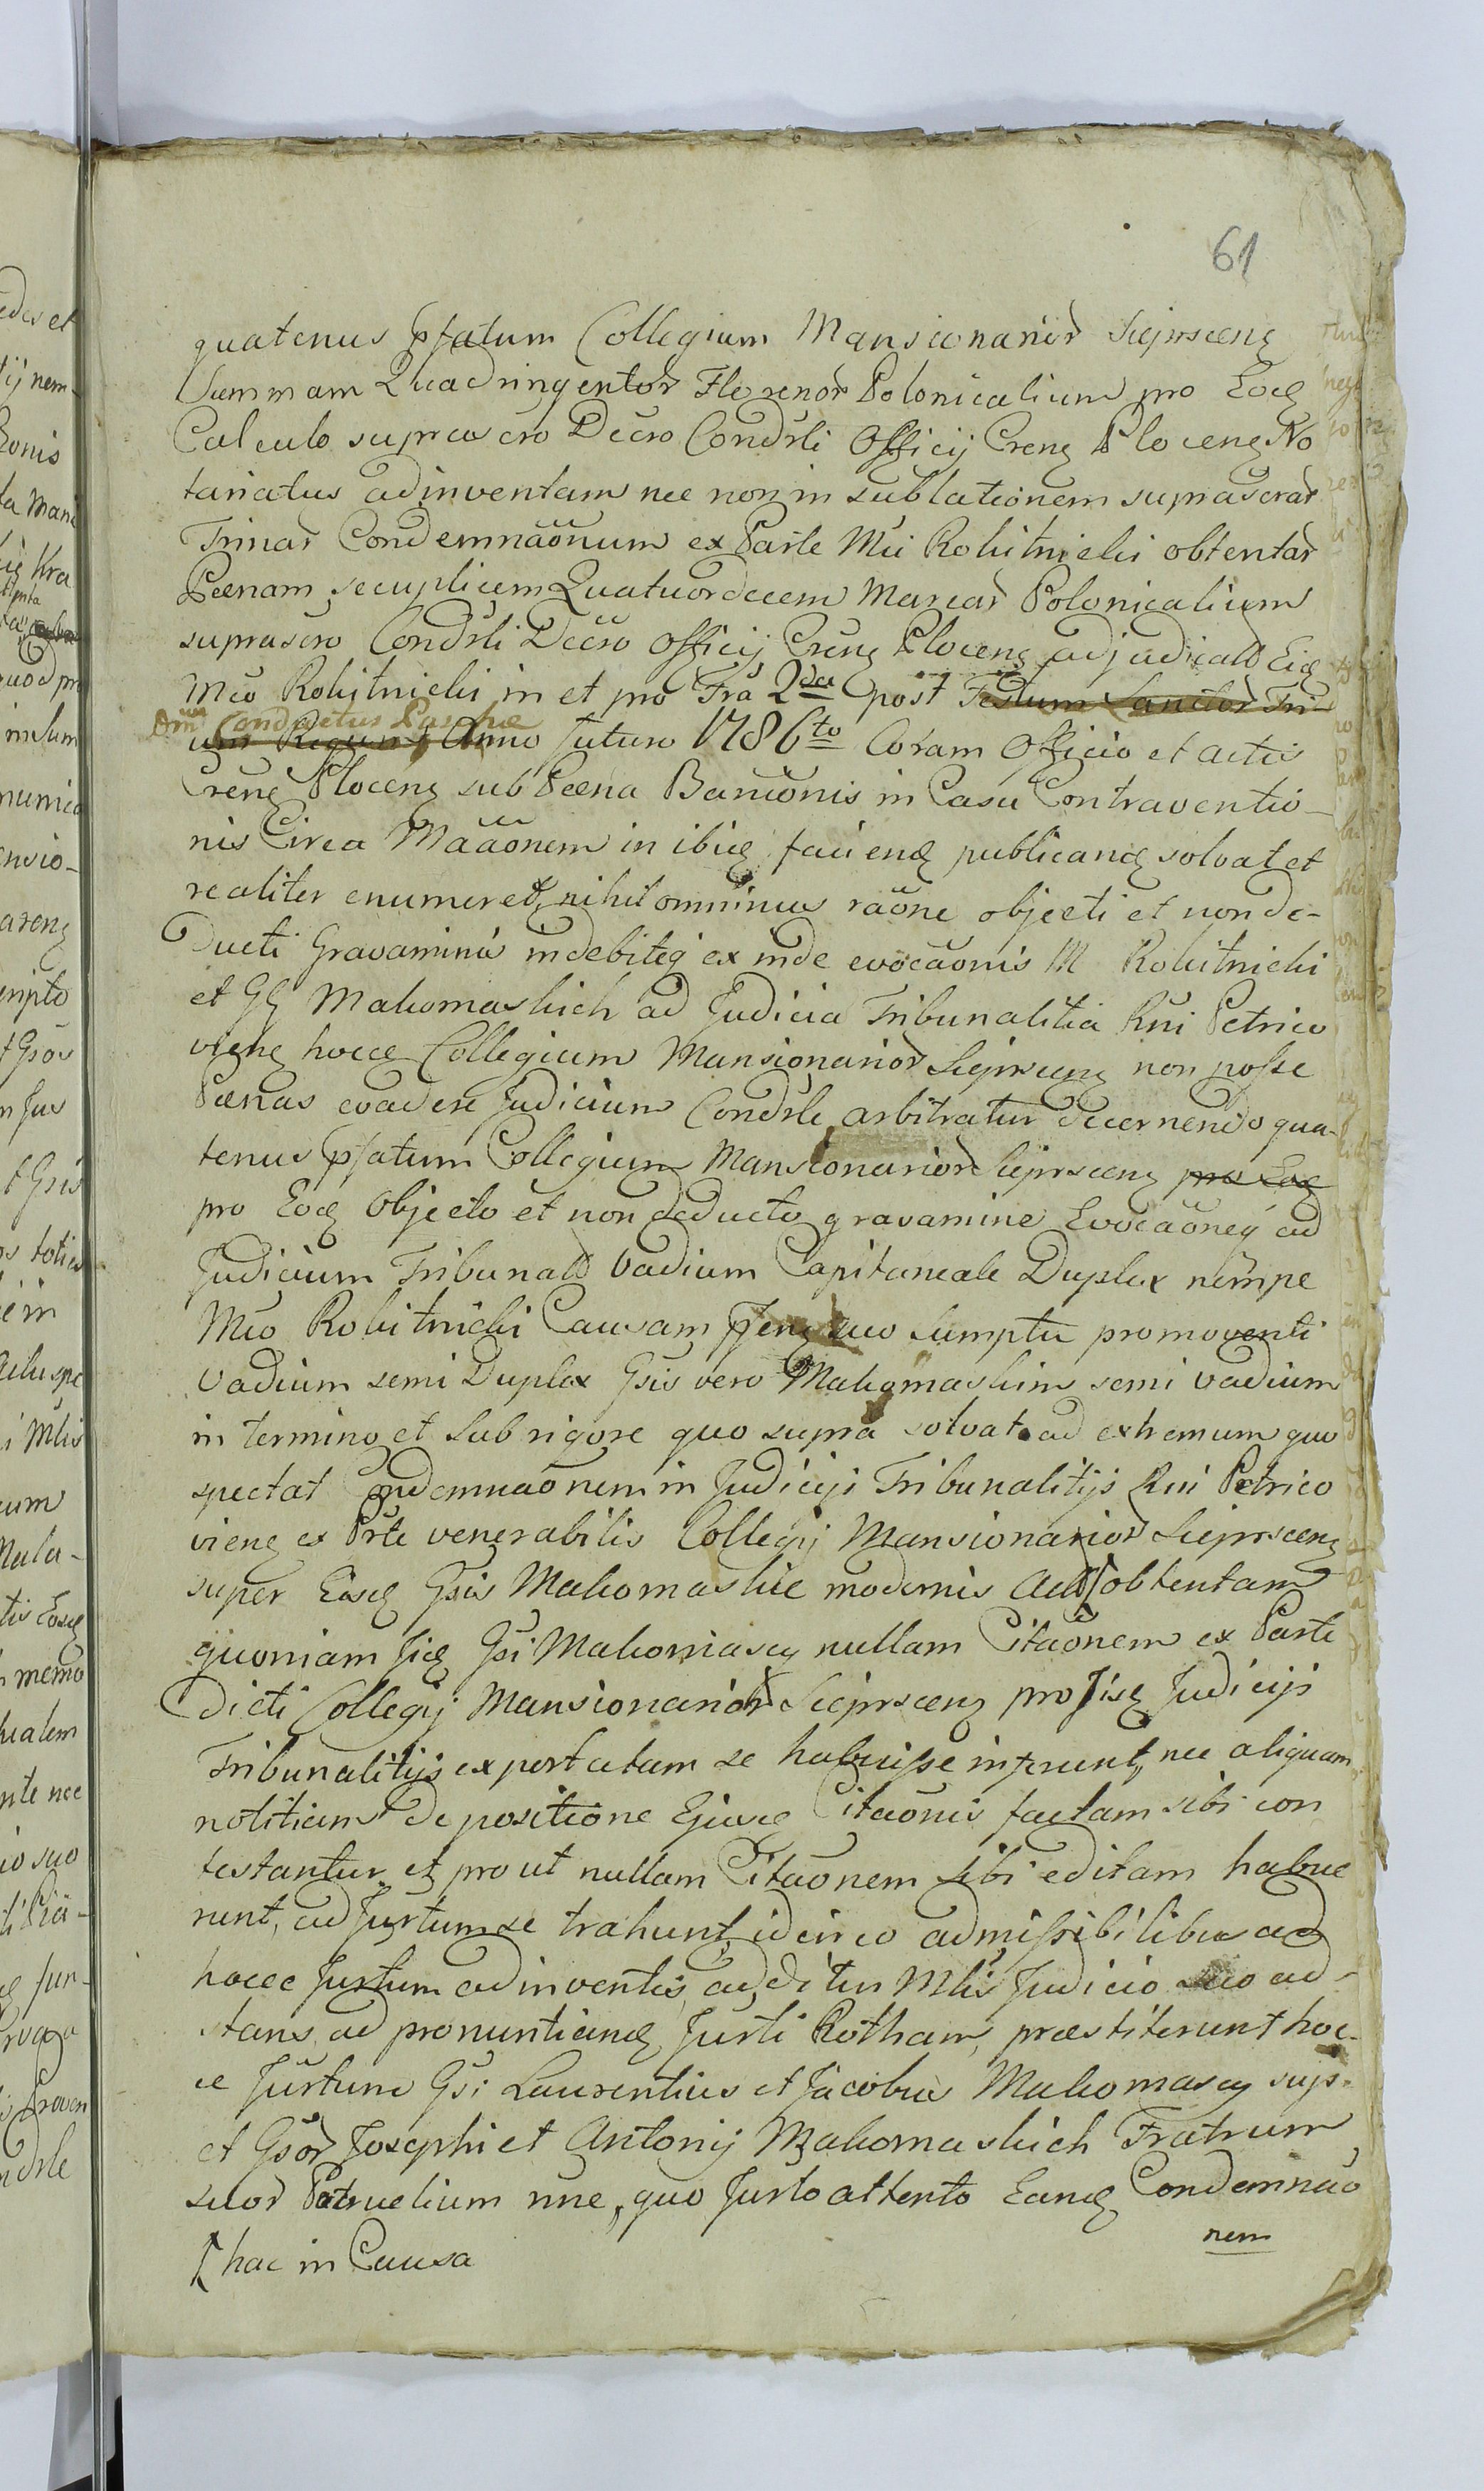 61
quatenus pfatum Collegium Mansionarior Sieprscen
Summam Quadringentor Florenor Polonicalium pro Eod
Calculo suprascro Decro Condrli Officij Cren Plocen No
tariatus adinventam nec non in sublationem suprascrar
Trinar Condemnaonum ex Parte Mci Rokitnicki obtentar
Poenam secuplicem Quatuordecem Marcar Polonicalium
suprascro Condrli Decro Officij Cren Plocen adjudicat Eid
Mco Rokitnicki in et pro Fra 2da post Festum Sanctor Tri-
Dnicam Conductus Paschae
um Regum Anno futuro 1786to Coram Officio et actis
Cren Plocen sub Poena Bannonis in Casu Contraventio-
nis Circa Maaonem in ibid faciend publicand solvat et
realiter enumeret, nihilominus raone objecti et non de-
ducti Gravaminis indebiteq ex inde evocaonis M Rokitnicki
et GG Makomaskich ad Judicia Tribunalitia Rni Petrico
vien hocce Collegium Mansionarior Sieprscen non posse
Poenas evadere Judicium Condrle arbitratur decernendo qua-
tenus pfatum Collegium Mansionarior Sieprscen pro Eod
pro Eod Objecto et non deducto gravamine Evocaoneq ad
Judicium Tribunal Vadium Capitaneale Duplex nempe
Mco Rokitnicki Causam pen suo sumptu promoventi
Vadium semi Duplex Gsis vero Makomaskim semi vadium
in termino et sub rigore quo supra solvat. ad extremum quo
spectat Condemnaonem in Judicijs Tribunalitijs Rni Petrico
vien ex Prte venerabilis Collegij Mansionarior Sieprscen
super Eisd Gsis Makomaskie modernis Act obtentam
quoniam jid Gsi Makomascy nullam Citaonem ex Parte
dicti Collegij Mansionarior Sieprscen pro jisd Judicijs
Tribunalitijs exportatam se habuisse inferunt, nec aliquam
notitiam de positione Ejusd Citaonis factam sibi con
testantur et prout nullam Citaonem sibi editam habue
runt, ad Jurtum se trahunt, idcirco admissibilibus ad
hocce Jurtum adinventis, additus Mlis Judicio suo ad-
stans, ad pronuntiand Jurti Rotham, praestiterunt hoc-
ce Jurtum Gsi Laurentius et Jacobus Makomascy sup.
et Gsor Josephi et Antonij Makomaskich Fratrum
suor Patruelium nne, quo Jurto attento Eand Condemnao
nem
hac in Causa